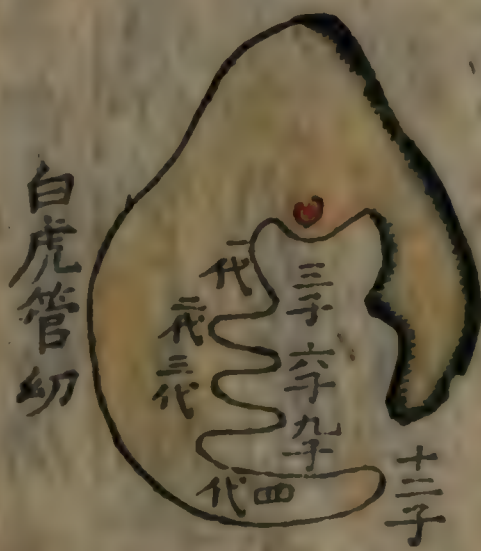 白虎管幼
一代
二代
三代
四代
三子
六子
九子
十二子